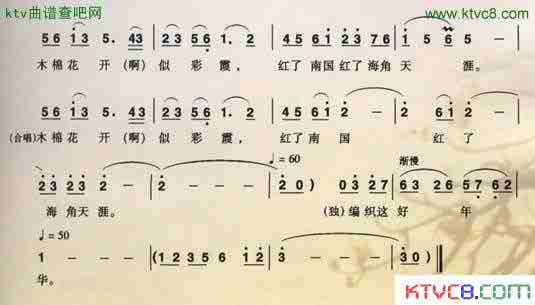 ktv曲谱查吧网 www.ktvc8.com
5 6 1 3 5. 43 | 2 3 5 6 1. 2 | 4 5 6 1 2 3 7 6 | 1 5 5 — |
木棉花 开 (啊) 似 彩 霞， 红了南国红了海角 天 涯。
5 6 1 3 5. 43 | 2 3 5 6 1. 2 | 4 5 6 1 2 — | 2 2 — |
(合唱)木棉花 开 (啊) 似 彩 霞， 红了南 国 红 了
♩=60 渐慢
2 3 2 3 2 — | 2 — — — | 2 0) 0 3 2 7 | 6 3 2 6 5 7 6 2 |
海 角天 涯。 (独)编织这 好 年
♩=50
1 — — — | (1 2 3 5 6 1 2 | 3 — — — | 3 0) ‖
华。
KTVC8.com